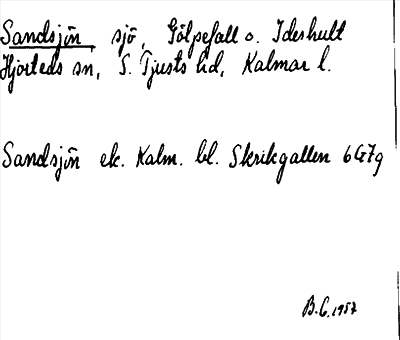 Sandsjön sjö, Gölpefall o. Ideshult
Hjorteds sn, S. Tjusts hd, Kalmar l.
Sandsjön ek. Kalm. bl. Skrikgallen 6G7g
B.C. 1957